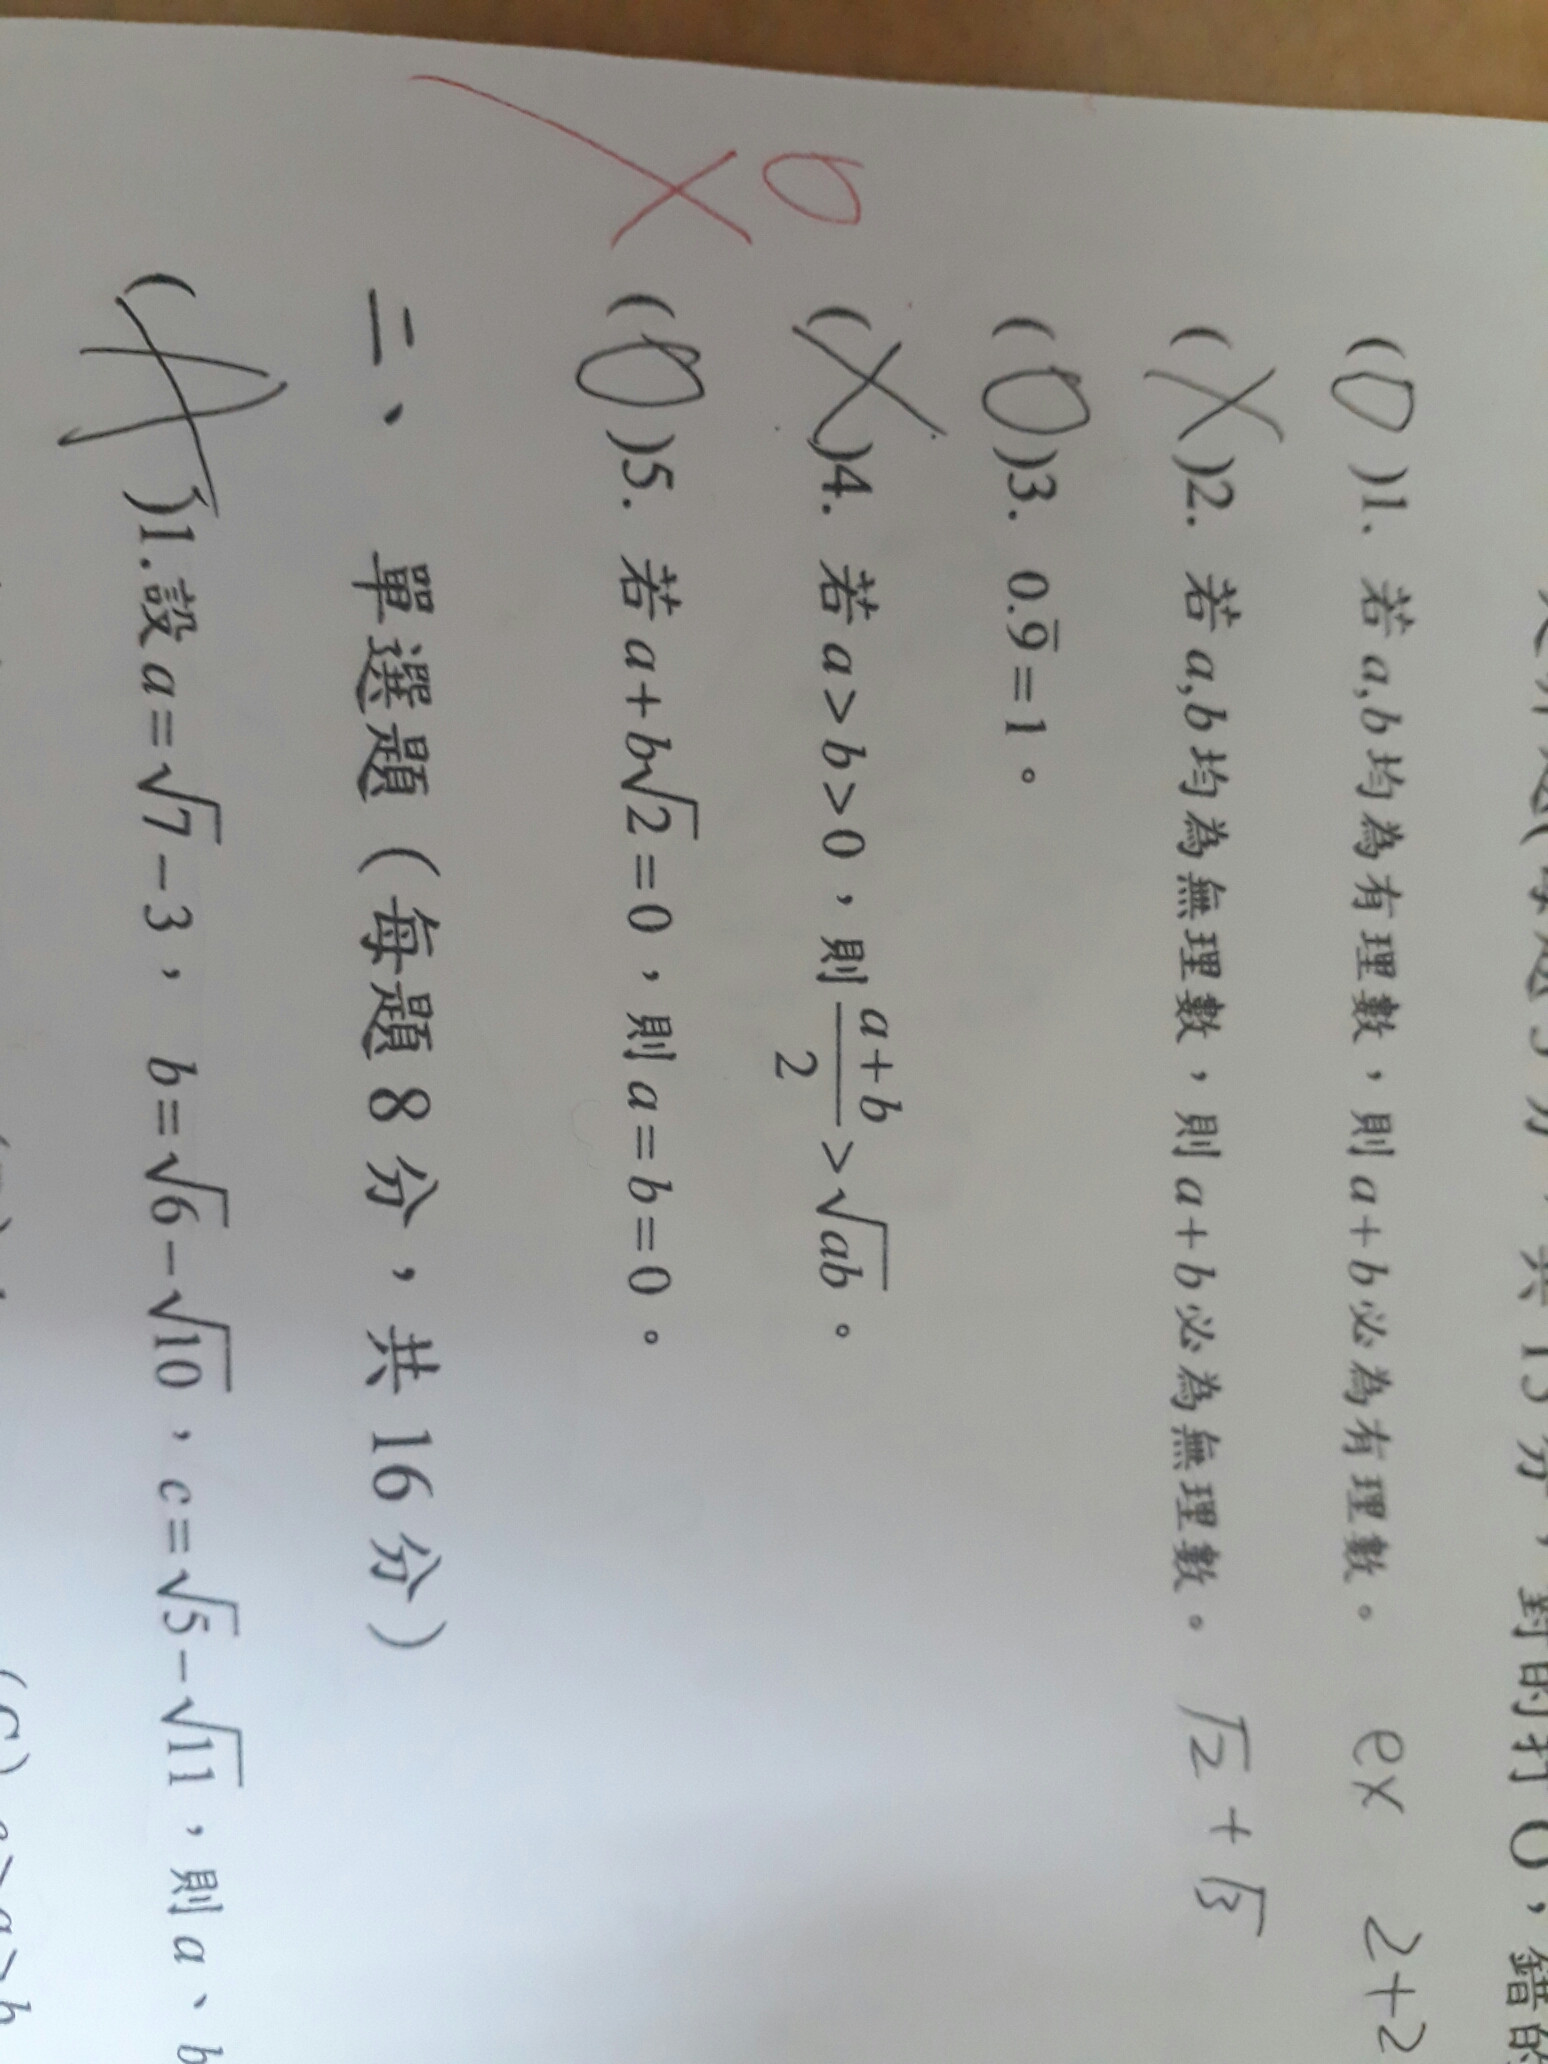 分，共15分，對的打O，錯的
(O)1、若a,b均為有理數，則a+b必為有理數。 ex 2+2
(X)2. 若a,b均為無理數，則a+b必為無理數。 √2+√3
(O)3. 0.9̅=1。
O (X)4. 若a>b>0，則(a+b)/2>√ab。
X (O)5. 若a+b√2=0，則a=b=0。
二、 單選題（每題8分，共16分）
(A)1.設a=√7−3， b=√6−√10，c=√5−√11，則a、b
(C)